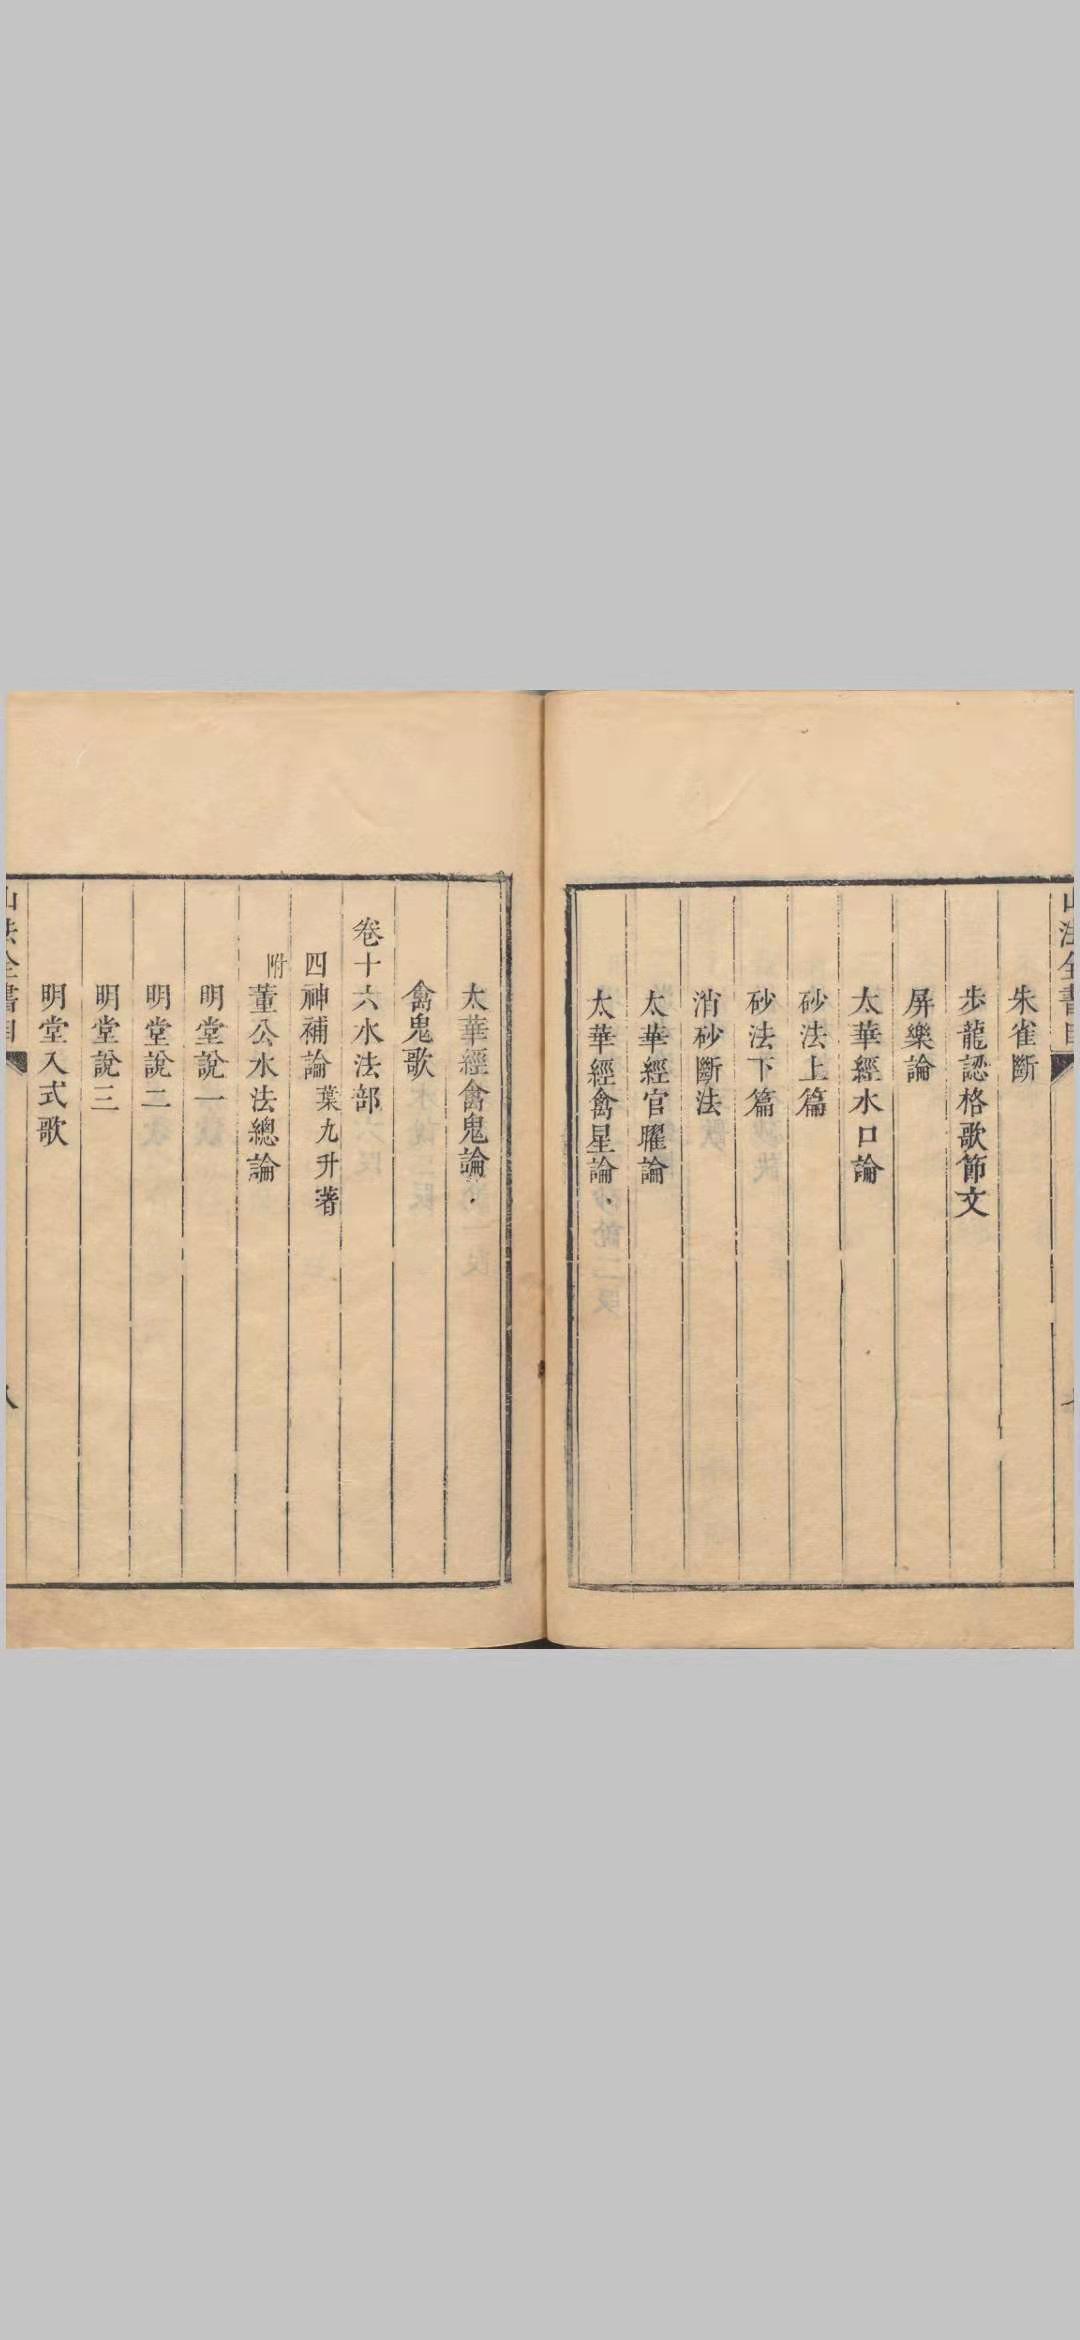 山法全書目
朱雀斷
步龍認格歌節文
屏樂論
太華經水口論
砂法上篇
砂法下篇
消砂斷法
太華經官曜論
太華經禽星論
太華經禽鬼論
禽鬼歌
卷十六水法部
四神補論 葉九升著
附董公水法總論
明堂說一
明堂說二
明堂說三
明堂入式歌
山法全書目
八